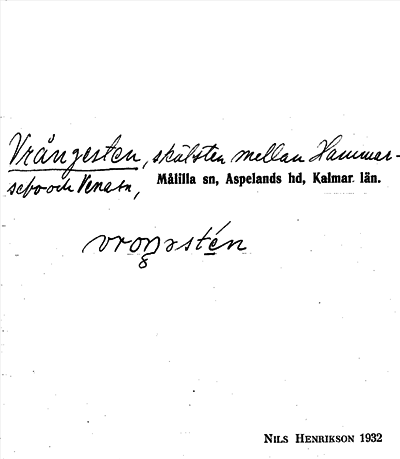 Vrångesten, skälsten mellan Hammar-
sebo och Vena sn,
Målilla sn, Aspelands hd, Kalmar län.
vroŋəstén
NILS HENRIKSON 1932